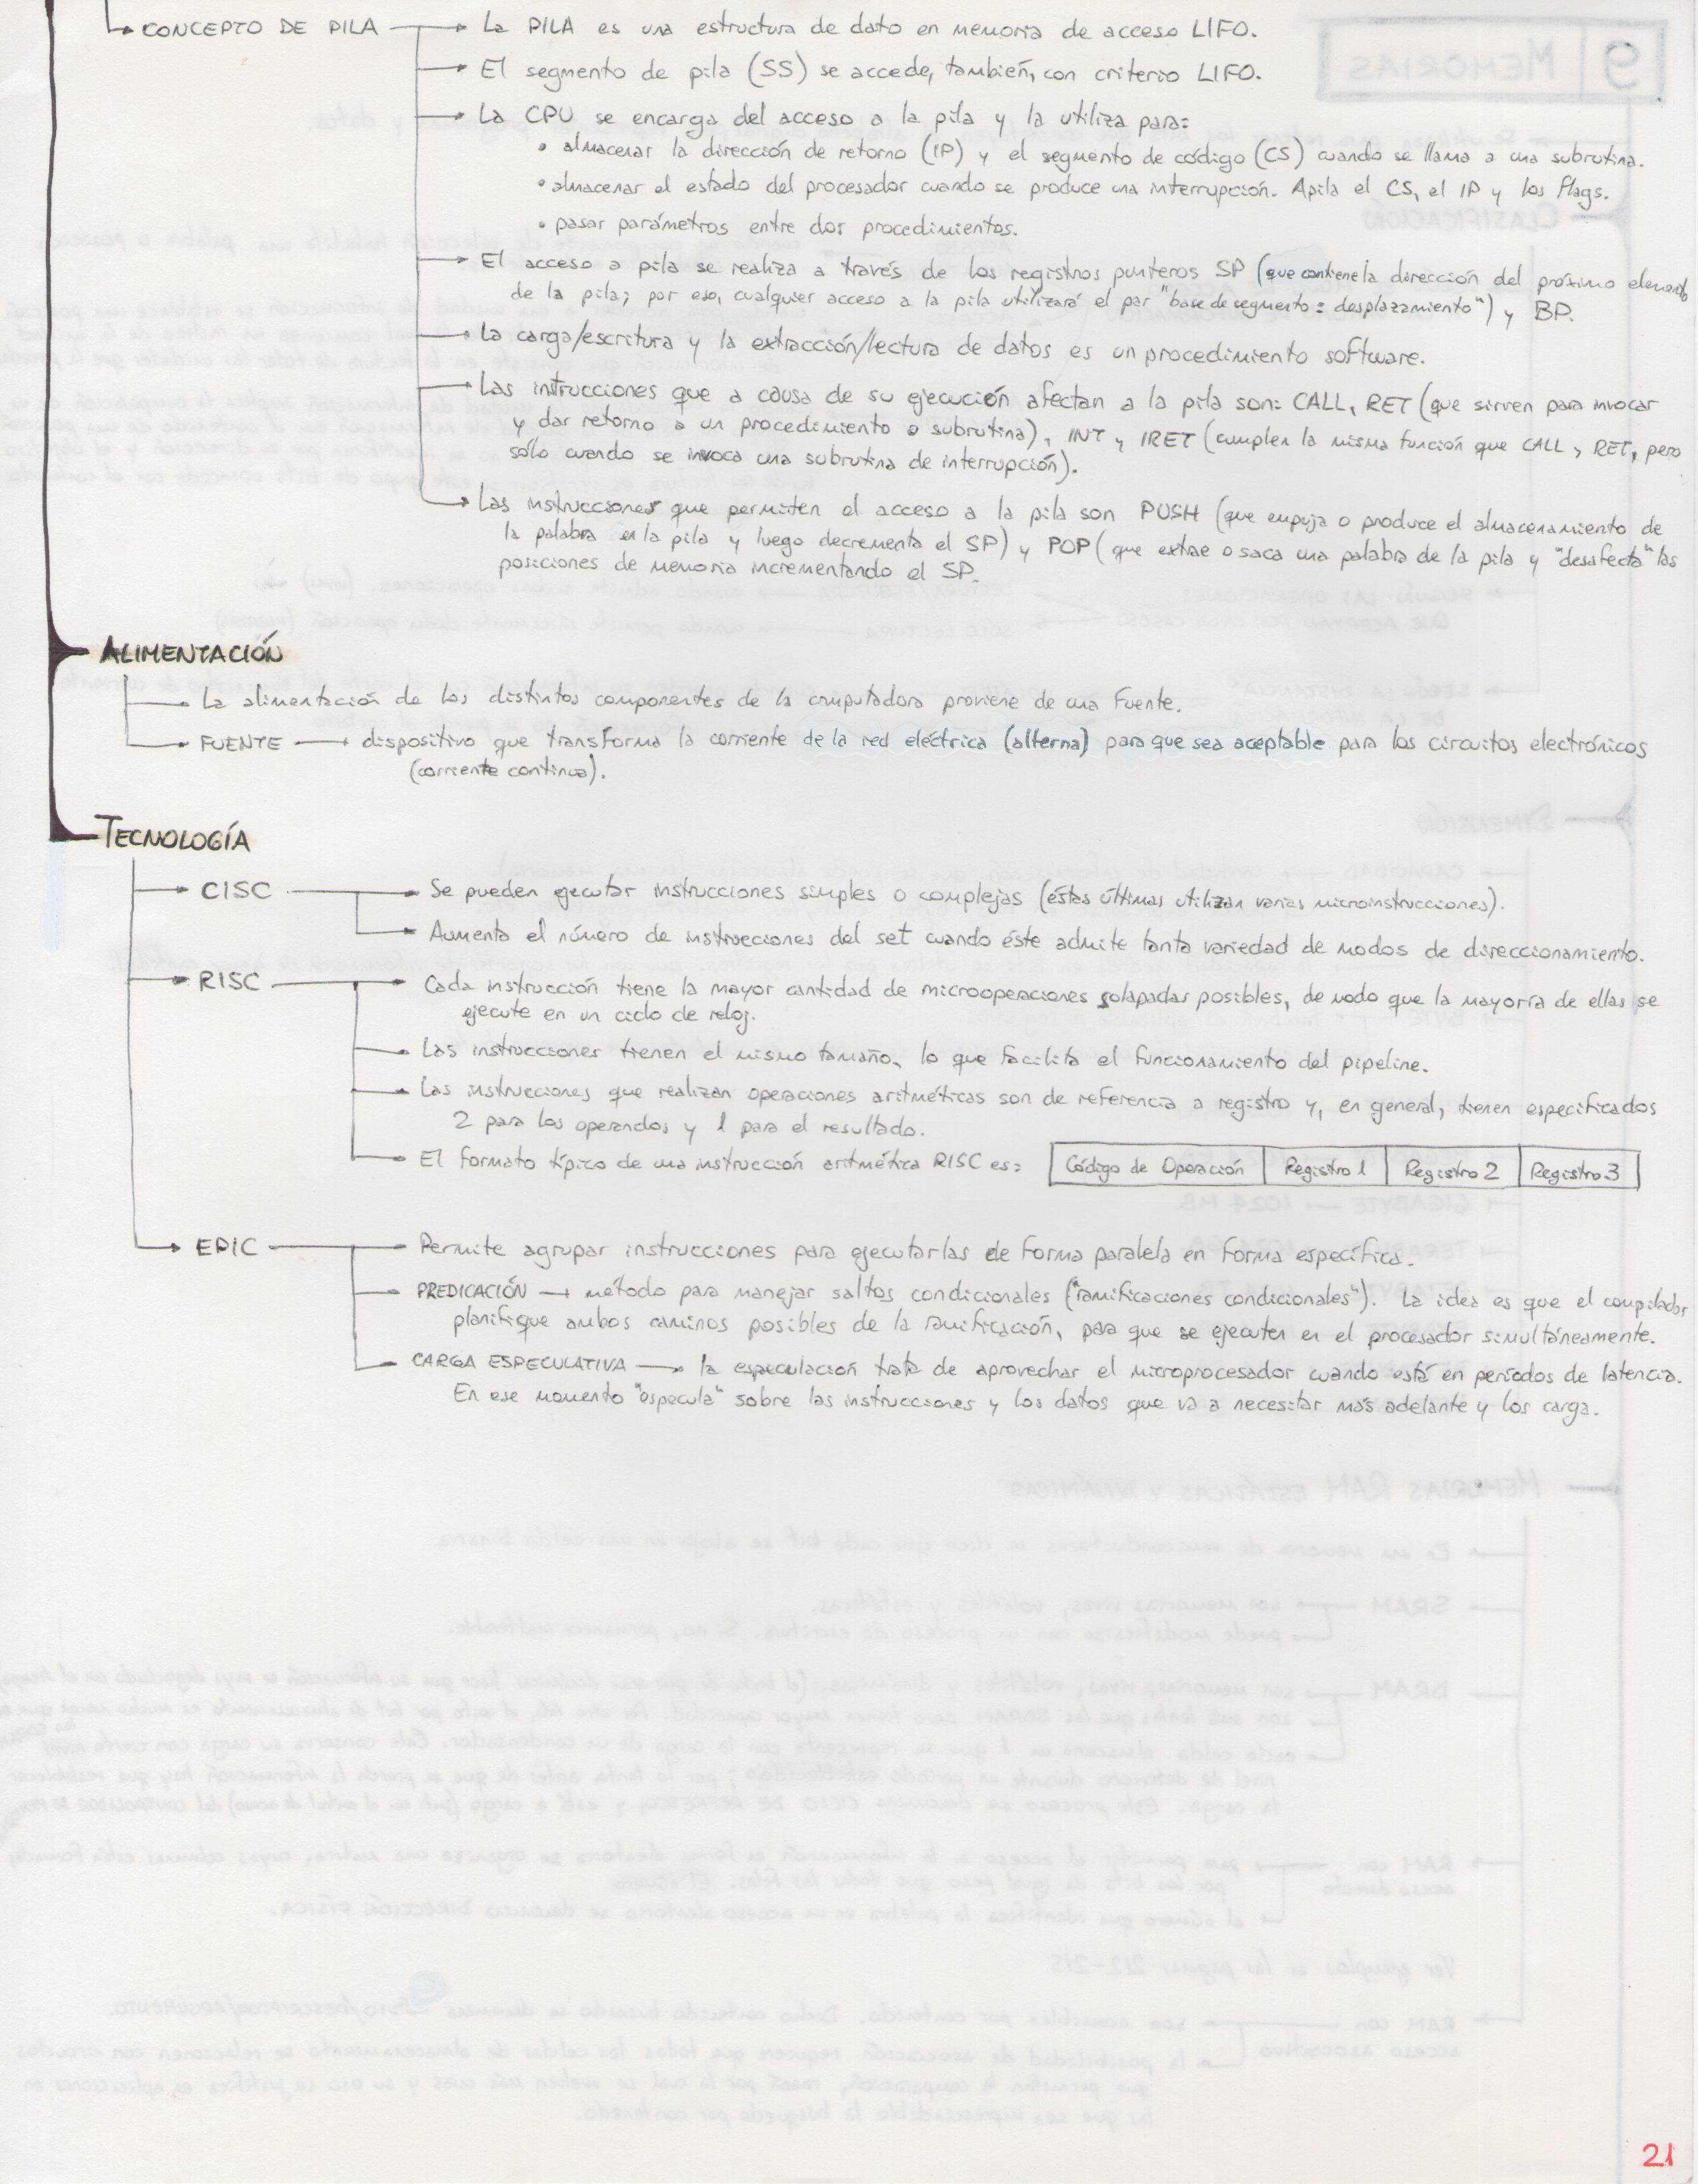 CONCEPTO DE PILA → La PILA es una estructura de dato en memoria de acceso LIFO.
→ El segmento de pila (SS) se accede, también, con criterio LIFO.
→ La CPU se encarga del acceso a la pila y la utiliza para:
• almacenar la dirección de retorno (IP) y el segmento de código (CS) cuando se llama a una subrutina.
• almacenar el estado del procesador cuando se produce una interrupción. Apila el CS, el IP y los flags.
• pasar parámetros entre dos procedimientos.
→ El acceso a pila se realiza a través de los registros punteros SP (que contiene la dirección del próximo elemento
de la pila; por eso, cualquier acceso a la pila utilizará el par "base de segmento : desplazamiento") y BP.
→ La carga/escritura y la extracción/lectura de datos es un procedimiento software.
→ Las intrucciones que a causa de su ejecución afectan a la pila son: CALL, RET (que sirven para invocar
y dar retorno a un procedimiento o subrutina), INT y IRET (cumplen la misma función que CALL y RET, pero
sólo cuando se invoca una subrutina de interrupción).
→ Las instrucciones que permiten el acceso a la pila son PUSH (que empuja o produce el almacenamiento de
la palabra en la pila y luego decrementa el SP) y POP (que extrae o saca una palabra de la pila y "desafecta" las
posiciones de memoria incrementando el SP.
ALIMENTACIÓN
→ La alimentación de los distintos componentes de la computadora proviene de una Fuente.
→ FUENTE → dispositivo que transforma la corriente de la red eléctrica (alterna) para que sea aceptable para los circuitos electrónicos
(corriente continua).
TECNOLOGÍA
→ CISC → Se pueden ejecutar instrucciones simples o complejas (éstas últimas utilizan varias microinstrucciones).
→ Aumenta el número de instrucciones del set cuando éste admite tanta variedad de modos de direccionamiento.
→ RISC → Cada instrucción tiene la mayor cantidad de microoperaciones solapadas posibles, de modo que la mayoría de ellas se
ejecute en un ciclo de reloj.
→ Las instrucciones tienen el mismo tamaño, lo que facilita el funcionamiento del pipeline.
→ Las instrucciones que realizan operaciones aritméticas son de referencia a registro y, en general, tienen especificados
2 para los operandos y 1 para el resultado.
→ El formato típico de una instrucción aritmética RISC es: Código de Operación | Registro 1 | Registro 2 | Registro 3
→ EPIC → Permite agrupar instrucciones para ejecutarlas de forma paralela en forma específica.
→ PREDICACIÓN → método para manejar saltos condicionales ("ramificaciones condicionales"). La idea es que el compilador
planifique ambos caminos posibles de la ramificación, para que se ejecuten en el procesador simultáneamente.
→ CARGA ESPECULATIVA → la especulación trata de aprovechar el microprocesador cuando está en períodos de latencia.
En ese momento "especula" sobre las instrucciones y los datos que va a necesitar más adelante y los carga.
21